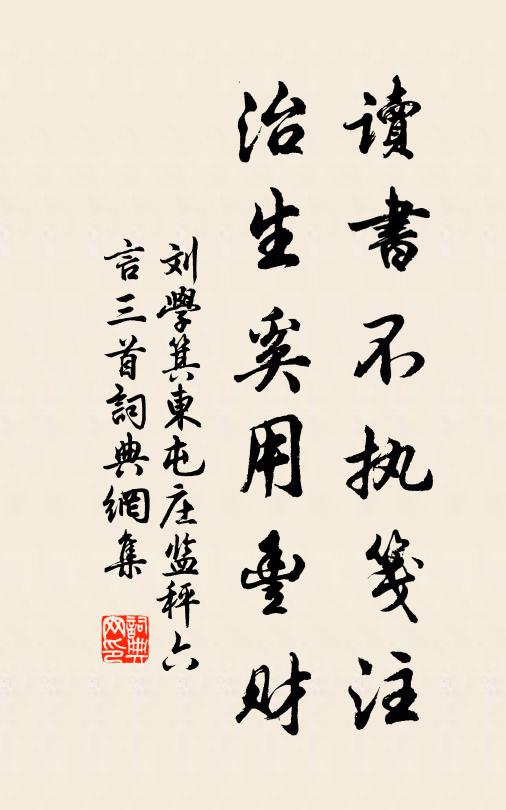 讀書不执箋注
治生奚用豐财
刘學箕東屯庄监秤六
言三首詞典網集
詞典
网印